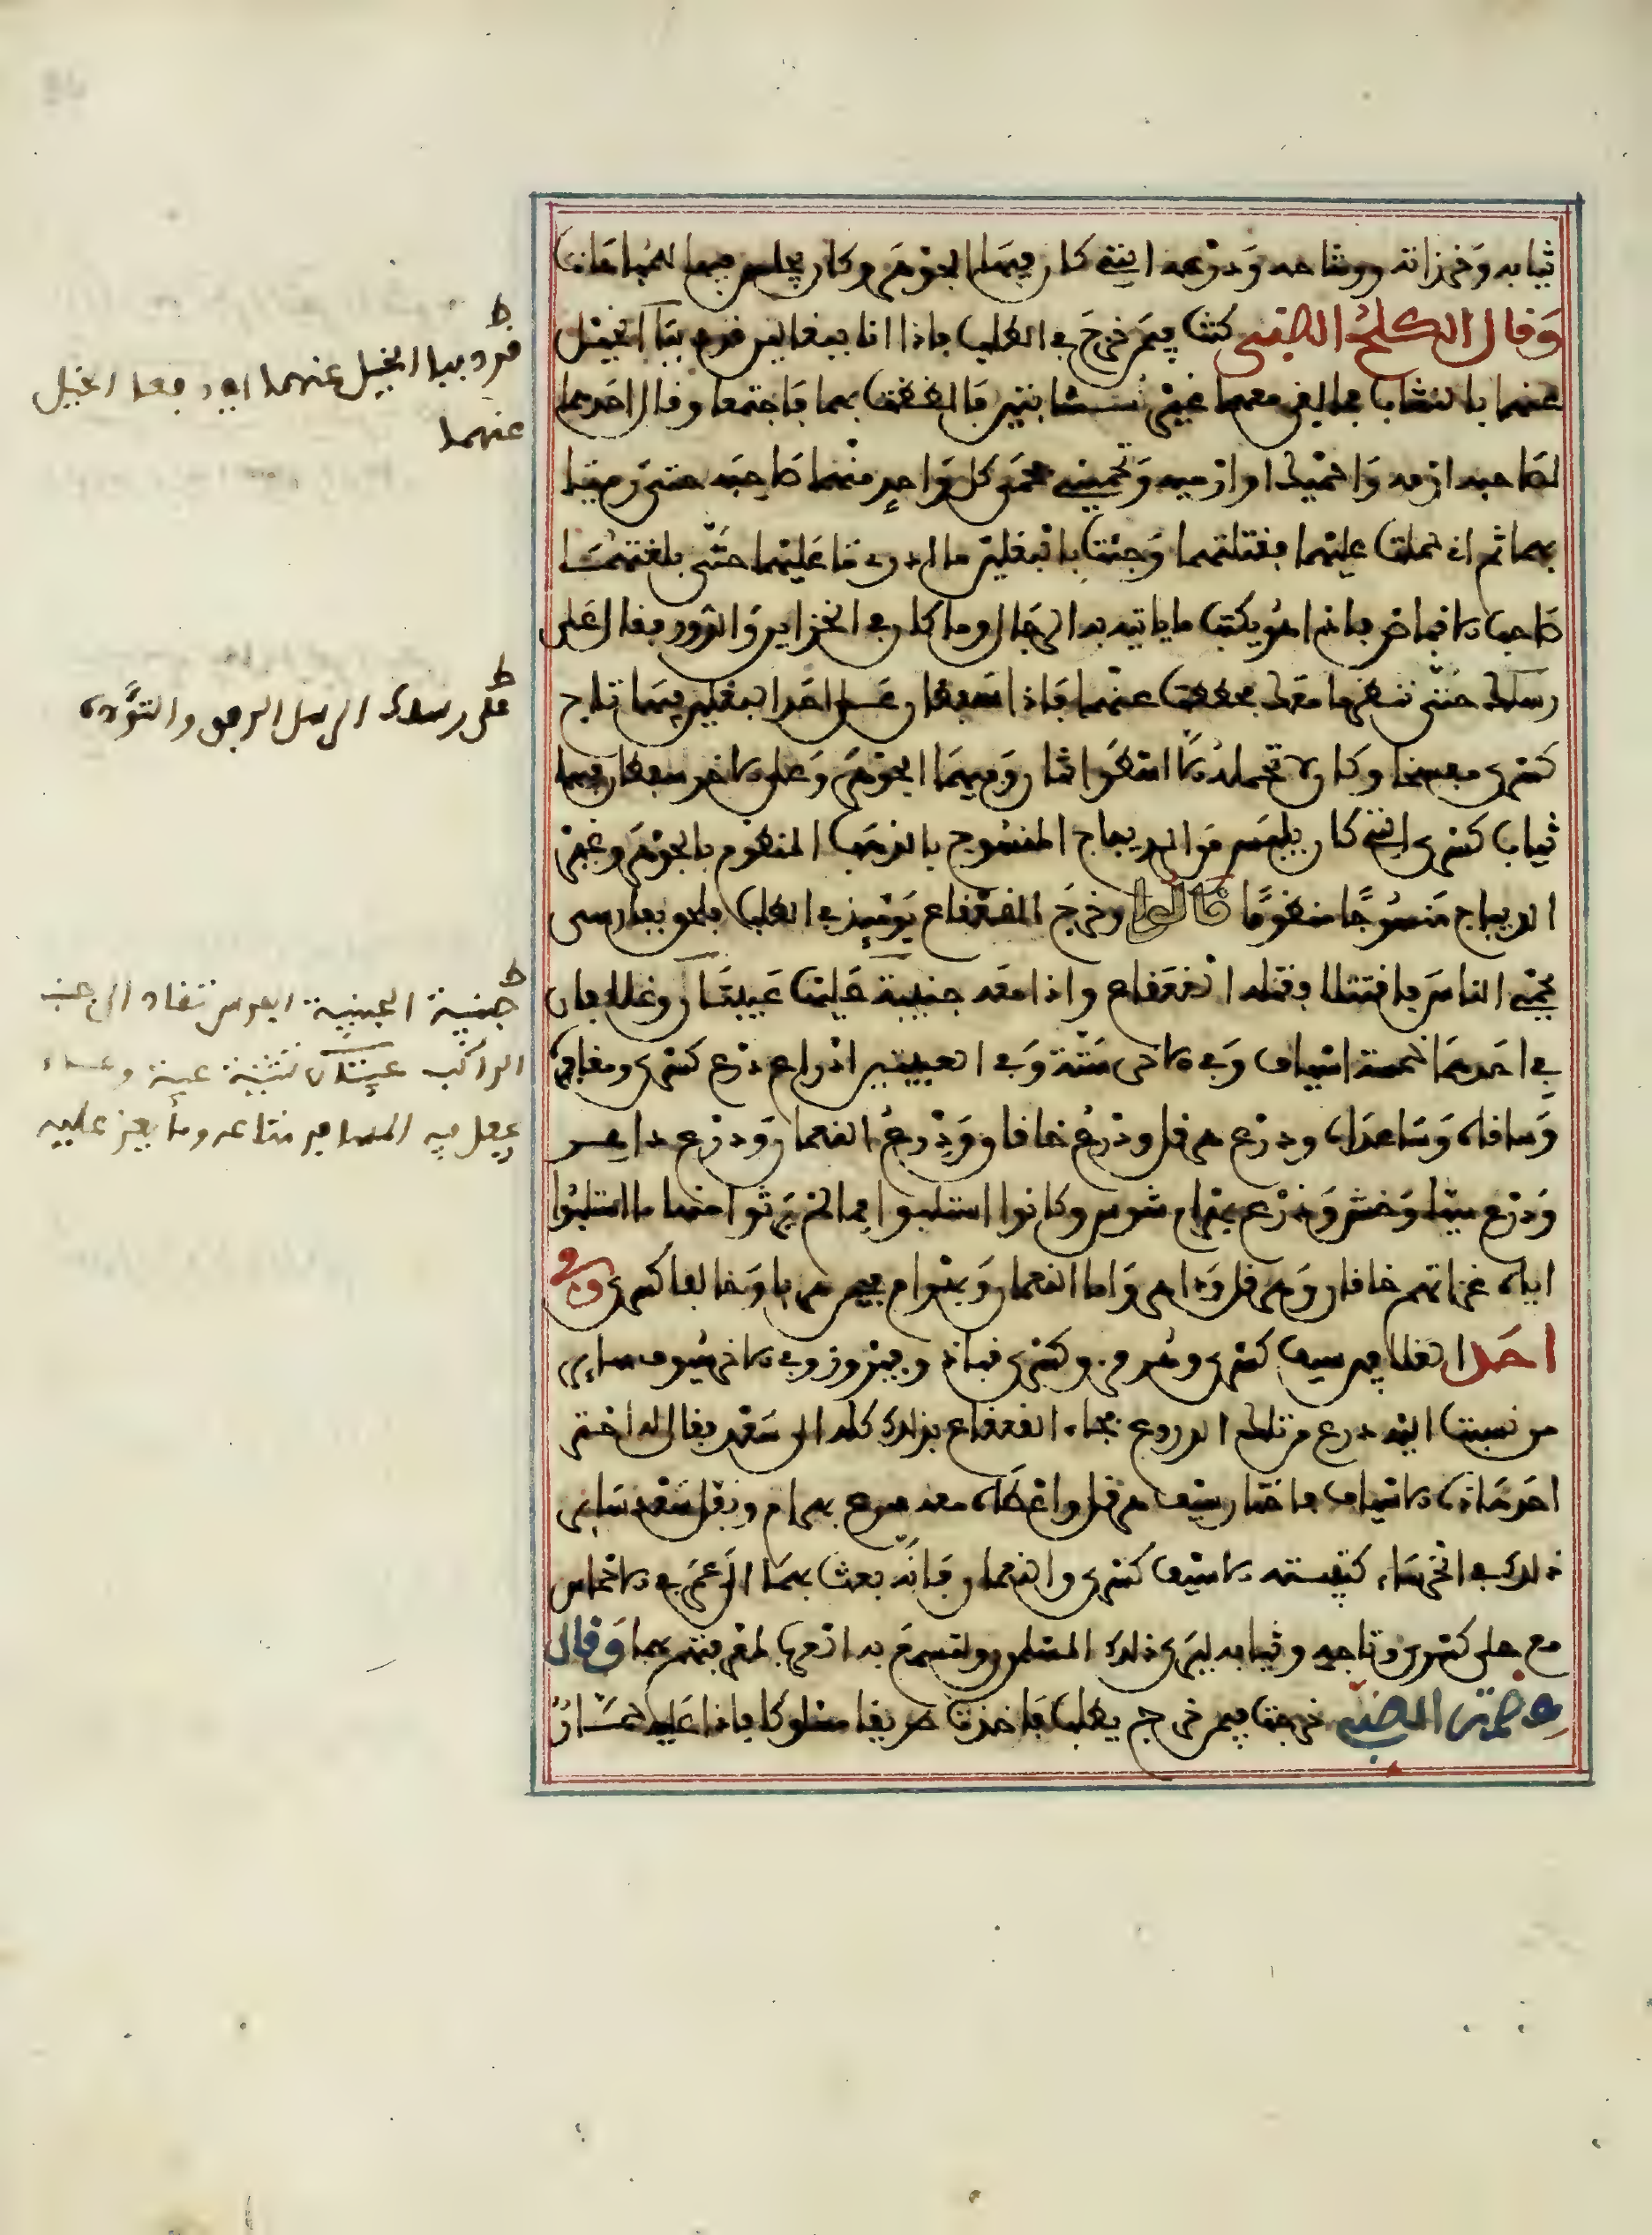 ثيابه وخرزاته ووشاحه ودرعه التي كان فيها الجوهر وكان يجلس فيها للمباهات
وقال الكلح الضبي كنت فيمن خرج في الطلب فاذا انا ببغالين قد ردا الخيل
عنهما بالنشاب فما بقي معهما غير نشابتين فالظظت بهما فاجتمعا وقال احدهما
لصاحبه ارمه واحميك او ارميه وتحميني فحمى كل واحد منهما صاحبه حتى رميا
بهما ثم اني حملت عليهما فقتلتهما وجئت بالبغلين ما ادري ما عليهما حتى بلغتهما
صاحب الاقباض فاذا هو يكتب ما ياتيه به الرجال وما كان في الخزاين والدور فقال على
رسلك حتى ننظر ما معك فحططت عنهما فاذا سفطان على احد البغلين فيهما تاج
كسرى مفسخا وكان لا تحمله الا اسطوانتان وفيهما الجوهر وعلى الاخر سفطان فيهما
ثياب كسرى التي كان يلبس من الديباج المنسوج بالذهب المنظوم بالجوهر وغير
الديباج منسوجا منظوما قالوا وخرج القعقاع يومئذ في الطلب فلحق بفارسي
يحمي الناس فاقتتلا فقتله القعقاع واذا معه جنيبة عليها عيبتان وغلافان
في احدهما خمسة اسياف وفي الاخر ستة وفي العيبتين ادراع درع كسرى ومغافره
وساقاه وساعداه ودرع هرقل ودرع خاقان ودرع النعمان ودرع داهر
ودرع سياوخش ودرع بهرام شوبين وكانوا استلبوا ما لم يرثوا منها ما استلبوا
ايام غزاتهم خاقان وهرقل وداهر واما النعمان وبهرام فحين هربا وخالفا كسرى وفي
احد الغلافين سيف كسرى وهرمز وكسرى قباذ وفيروز وفي الاخر سيوف ساير
من نسبت اليه درع من تلك الدروع فجاء القعقاع بذلك كله الى سعد فقال له اختر
احد هاذه الاسياف فاختار سيف هرقل واعطاه معه درع بهرام ونفل سعد ساير
ذلك في الخرساء كتيبته الا سيف كسرى والنعمان فانه بعث بهما الى عمر في الاخماس
مع حلى كسرى وتاجه وثيابه ليرى ذلك المسلمون ولتسمع به العرب لمعرفتهم بهما وقال
عصمة الضبي خرجت فيمن خرج يطلب فاخذت طريقا مسلوكا فاذا عليه حمار
ط
قردبيا الخيل عنهما اي دفعا الخيل
عنهما
ط
على رسلك الرسل الرفق والتؤدة
ط
جنيبة الجنيبة الفرس تقاد الى جنب
الراكب عيبتان تثنية عيبة وعاء
يجعل فيه المسافر متاعه وما يعز عليه